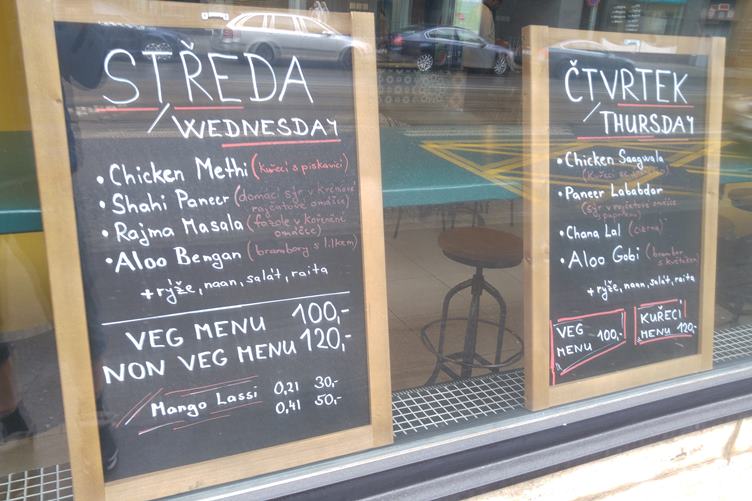 STŘEDA
/WEDNESDAY
• Chicken Methi (kuřecí s pískavicí)
• Shahi Paneer (domácí sýr v krémové
rajčatové omáčce)
• Rajma Masala (fazole v kořeněné
omáčce)
• Aloo Bengan (brambory s lilkem)
+ rýže, naan, salát, raita
VEG MENU 100,-
NON VEG MENU 120,-
Mango Lassi 0,2l 30,-
0,4l 50,-
ČTVRTEK
/THURSDAY
• Chicken Saagwala
(Kuřecí se
• Paneer Lababdar
(sýr v rajčatové omáčce
s paprikou)
• Chana Lal (cizrna)
• Aloo Gobi (brambor
s květákem)
+ rýže, naan, salát, raita
VEG
MENU 100,-
KUŘECÍ
MENU 120,-